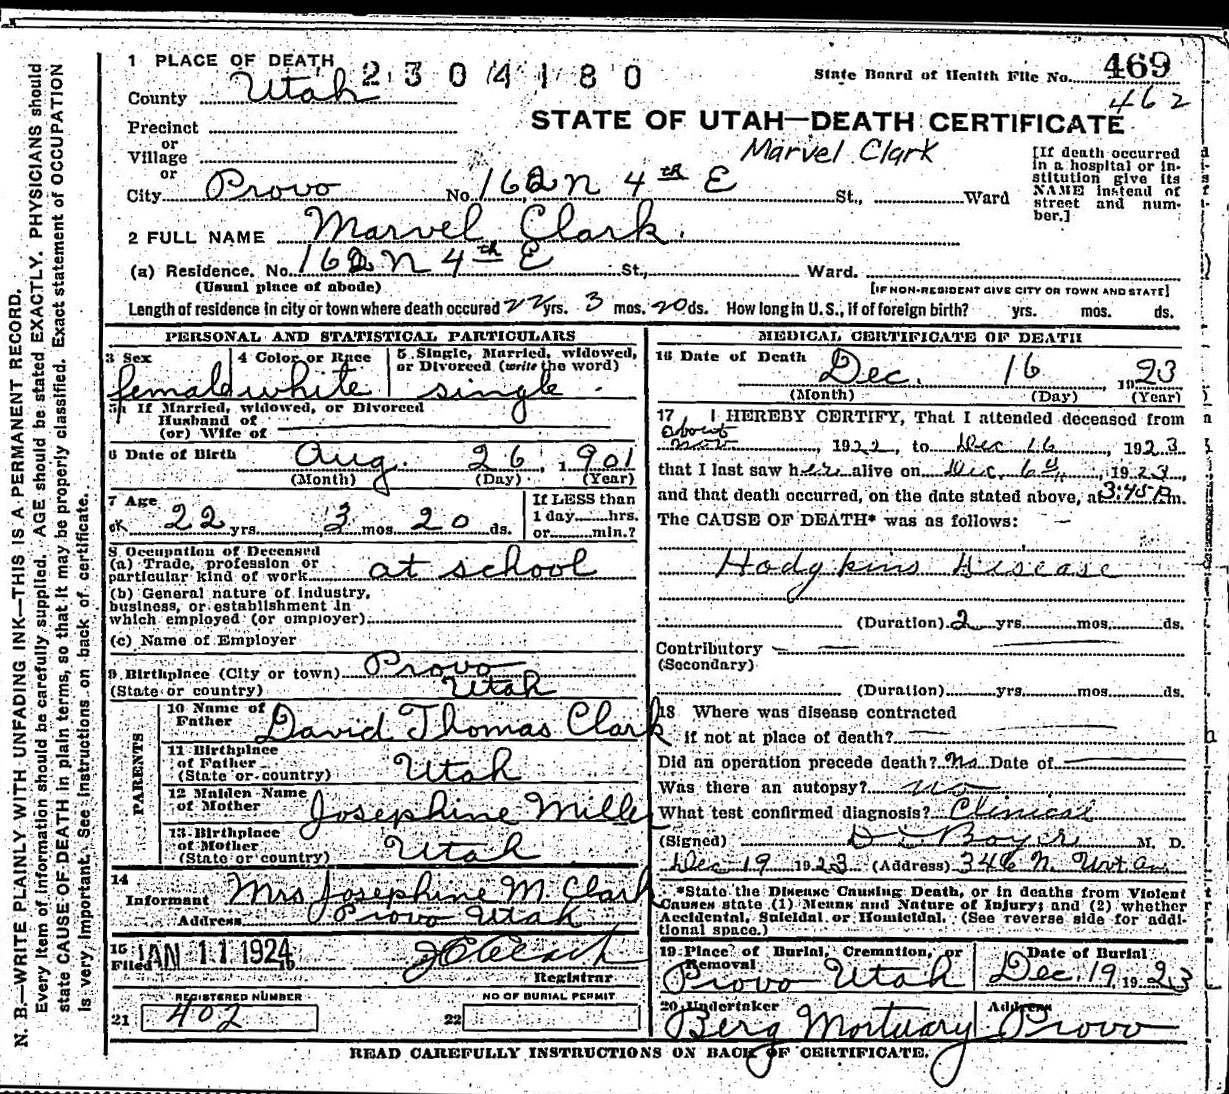 1 PLACE OF DEATH
2304180
State Board of Health File No. 469
County Utah
462
STATE OF UTAH—DEATH CERTIFICATE
Precinct
or
Village
or
Marvel Clark
[If death occurred in a hospital or institution give its NAME instead of street and number.]
City Provo No. 162 N 4th E St., Ward
2 FULL NAME Marvel Clark.
(a) Residence. No. 162 N 4th E St., Ward.
(Usual place of abode) [IF NON-RESIDENT GIVE CITY OR TOWN AND STATE]
Length of residence in city or town where death occured 22 yrs. 3 mos. 20 ds. How long in U. S., if of foreign birth? yrs. mos. ds.
PERSONAL AND STATISTICAL PARTICULARS
3 Sex female
4 Color or Race white
5 Single, Married, widowed, or Divorced (write the word) single
5a If Married, widowed, or Divorced
Husband of
(or) Wife of
6 Date of Birth Aug. 26, 1901
(Month) (Day) (Year)
7 Age 22 yrs. 3 mos. 20 ds.
If LESS than
1 day......hrs.
or.........min.?
OK
8 Occupation of Deceased
(a) Trade, profession or
particular kind of work at school
(b) General nature of industry,
business, or establishment in
which employed (or employer)
(c) Name of Employer
9 Birthplace (City or town) Provo
(State or country) Utah
PARENTS
10 Name of
Father David Thomas Clark
11 Birthplace
of Father
(State or country) Utah
12 Maiden Name
of Mother Josephine Mille
13 Birthplace
of Mother
(State or country) Utah
14
Informant Mrs Josephine M Clark
Address Provo Utah
15
Filed JAN 11 1924 19
Registrar
REGISTERED NUMBER
21 402
NO OF BURIAL PERMIT
22
MEDICAL CERTIFICATE OF DEATH
16 Date of Death Dec. 16, 1923
(Month) (Day) (Year)
17 I HEREBY CERTIFY, That I attended deceased from
about
Nov, 1922, to Dec 16, 1923
that I last saw her alive on Dec. 6th, 1923,
and that death occurred, on the date stated above, at 3:45 Pm.
The CAUSE OF DEATH* was as follows:
Hodgkins Disease
(Duration) 2 yrs. mos. ds.
Contributory
(Secondary)
(Duration) yrs. mos. ds.
18 Where was disease contracted
if not at place of death?
Did an operation precede death? No Date of
Was there an autopsy? no
What test confirmed diagnosis? Clinical
(Signed) Boyer M. D.
Dec 19 1923 (Address) 346 N.
*State the Disease Causing Death, or in deaths from Violent
Causes state (1) Means and Nature of Injury; and (2) whether
Accidental, Suicidal or Homicidal. (See reverse side for addi-
tional space.)
19 Place of Burial, Cremation, or
Removal
Provo Utah
Date of Burial
Dec 19 1923
20 Undertaker
Berg Mortuary
Address
Provo
READ CAREFULLY INSTRUCTIONS ON BACK OF CERTIFICATE.
N. B.—WRITE PLAINLY WITH UNFADING INK—THIS IS A PERMANENT RECORD.
Every item of information should be carefully supplied. AGE should be stated EXACTLY. PHYSICIANS should
state CAUSE OF DEATH in plain terms, so that it may be properly classified. Exact statement of OCCUPATION
is very important. See instructions on back of certificate.